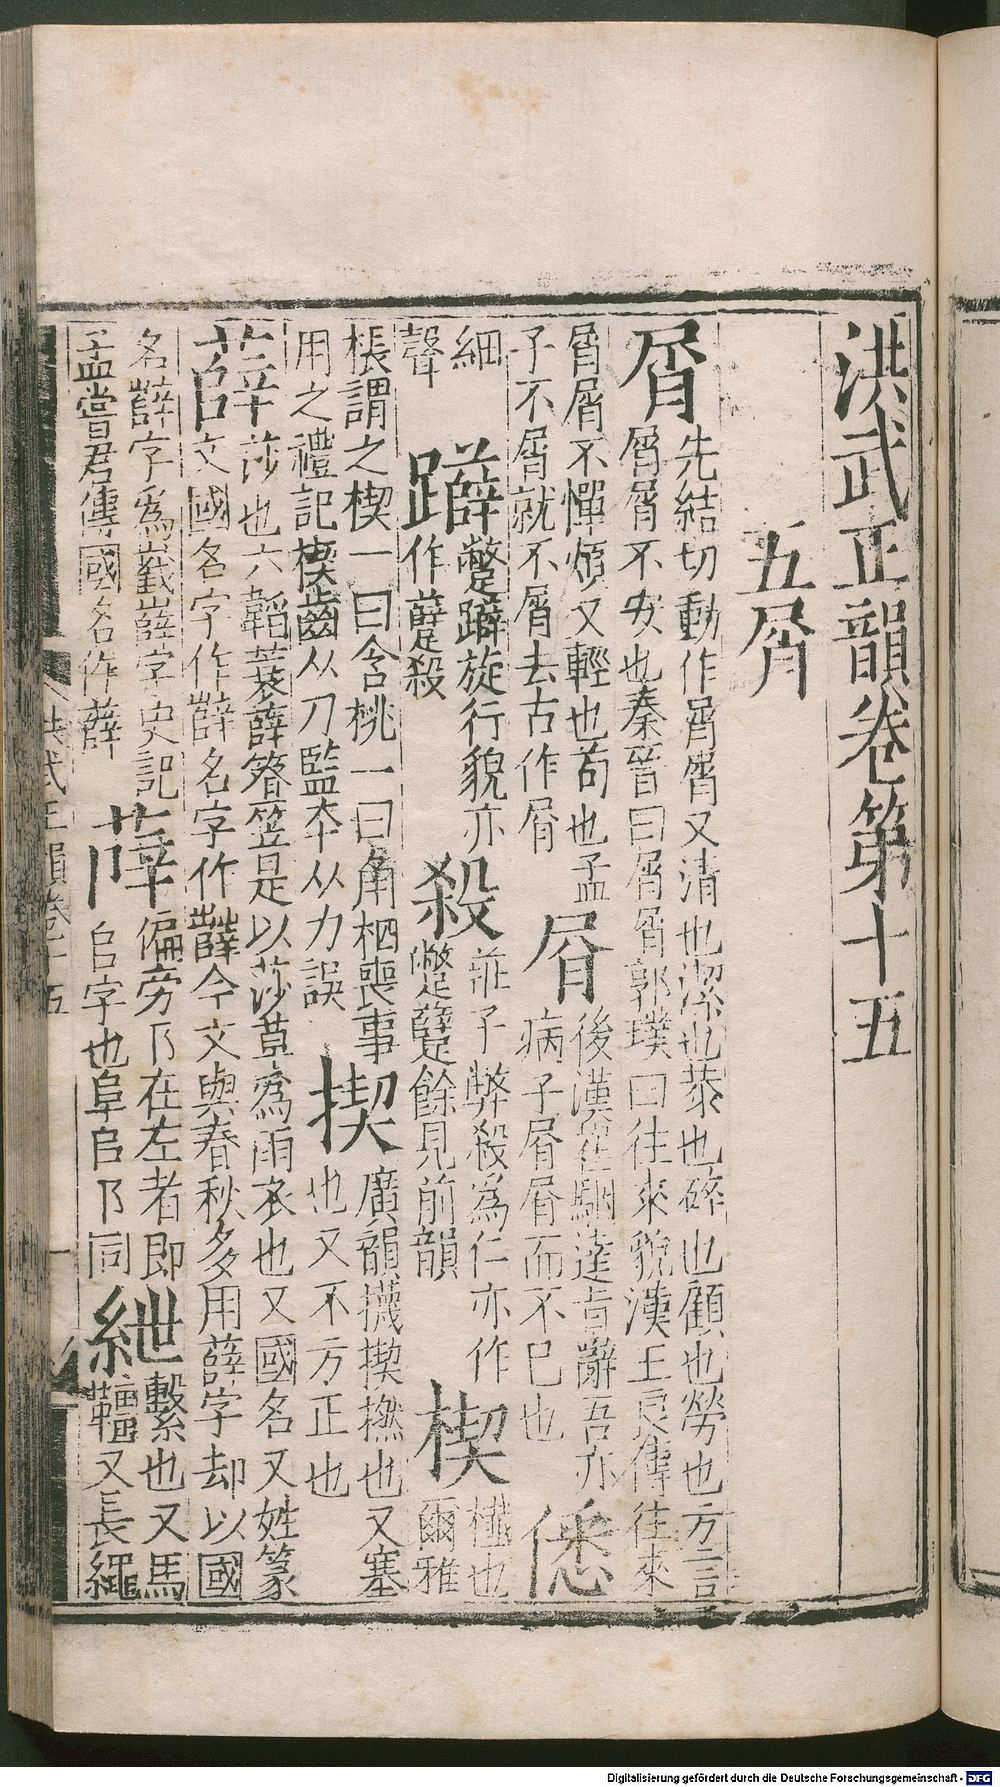 洪武正韻卷第十五
五屑
屑先結切動作屑屑又清也潔也恭也碎也顧也勞也方言
屑屑不安也秦晉曰屑屑郭璞曰往來貌漢王良傳往來
屑屑不憚煩又輕也苟也孟
子不屑就不屑去古作屑
屑後漢崔駰達旨辭吾亦
病子屑屑而不已也
僁細
聲
躃蹩躃旋行貌亦
作躠殺
殺莊子弊殺為仁亦作
蹩躠餘見前韻
楔櫼也
爾雅
棖謂之楔一曰含桃一曰角柶喪事
用之禮記楔齒从刀監本从力誤
揳廣韻攕揳㩢也又塞
也又不方正也
薛莎也六韜蓑薛簦笠是以莎草為雨衣也又國名又姓篆
文國名字作薛名字作薛今文與春秋多用薛字却以國
名薛字為嶻嶭字史記
孟嘗君傳國名作薛
偏旁阝在左者即
𠂤字也阜𠂤阝同
紲繫也又馬
韁又長繩
洪武正韻卷十五
一
Digitalisierung gefördert durch die Deutsche Forschungsgemeinschaft - DFG